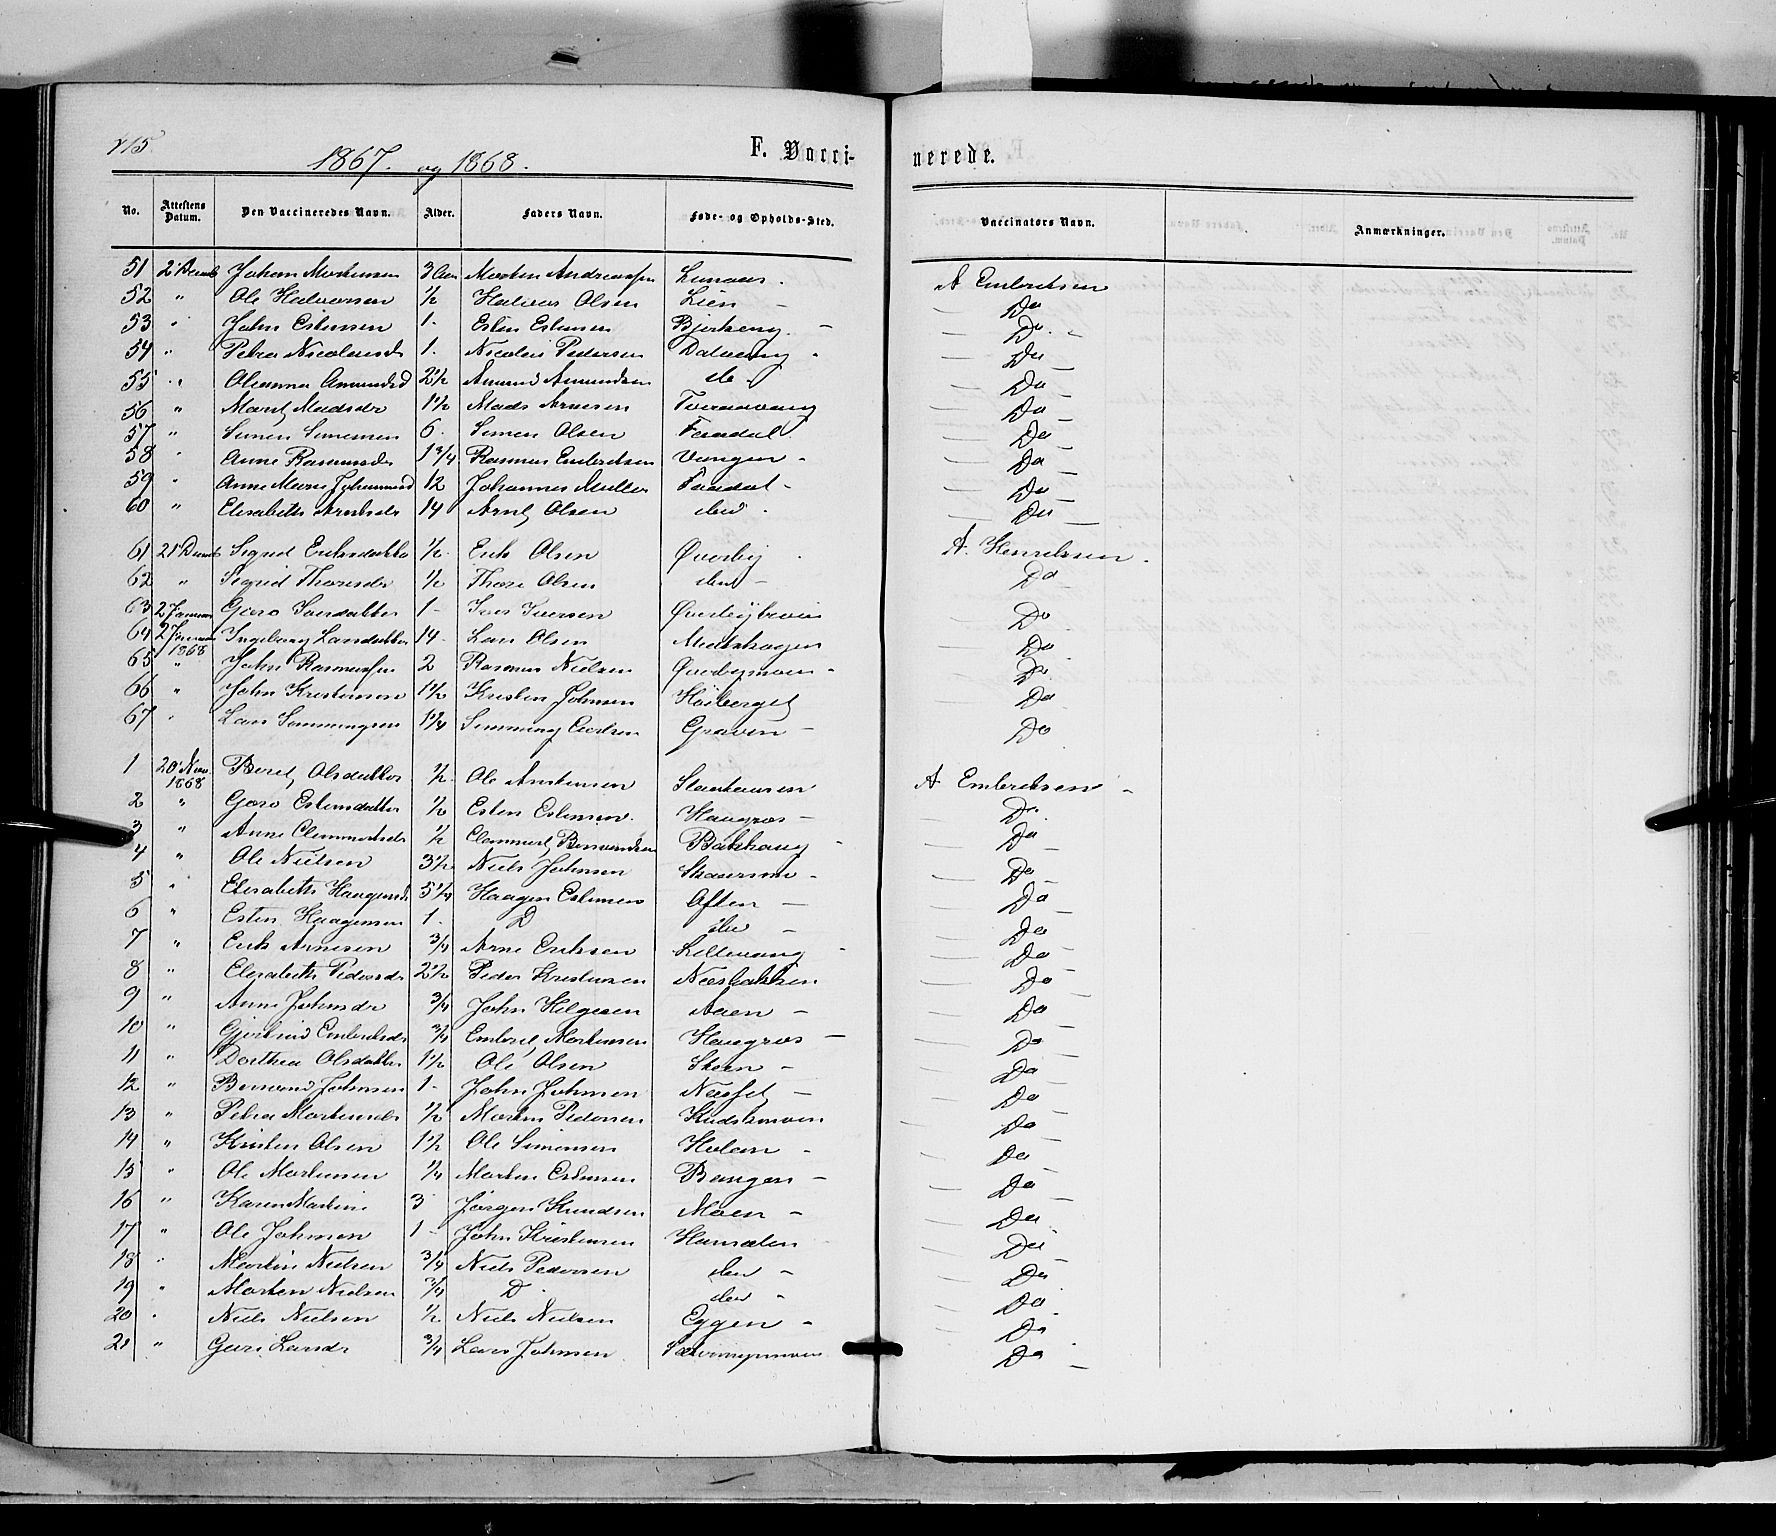 415
1867. og 1868.
F. Vacci-
nerede.
No. Attestens Datum. Den Vaccineredes Navn. Alder. Faders Navn. Føde- og Opholds-Sted. Vaccinators Navn. Anmærkninger.
51 2 Decemb Johan Mortensen 3 Morten Andreassen A Embretsen
52 " Ole Halvorsen 1/2 Halvor Olsen Lien - Do
53 " John Estensen 1 - Esten Estensen Bjerkeng - Do -
54 " Petra Nicolaisdr 1 - Nicolai Pedersen Do -
55 " Oleanna Amundsd 2 1/2 Amund Amundsen do Do -
56 " Marit Madsdr 1 1/2 Mads Arnesen Do -
57 " Simen Simensen 6 - Simen Olsen Faadal Do -
58 " Anne Rasmusdr 1 3/4 Rasmus Embretsen Vangen - Do -
59 " Anne Marie Johannesd 12 Johannes Muller Faadal - Do -
60 " Elisabeth Arntsdr 14 Arnt Olsen do Do -
61 21 Decemb Sigrid Eriksdatter 1/2 Erik Olsen Øverby A. Henriksen
62 " Sigrid Thoresdr 1/2 Thore Olsen do - Do
63 2 Januar Goro Iversdatter 1 - Iver Iversen Do
64 2 Januar 1868 Ingeborg Larsdatter 14 - Lars Olsen Do
65 " John Rasmussen 2 Rasmus Nielsen Øverbymoen - Do
66 " John Kristensen 1 1/2 Kristen Johnsen Høiberget Do
67 " Lars Semmingsen 1 1/4 Semming Graven - Do
1 20 Nov 1868 Beret Olsdatter 1/2 Ole A Embretsen -
2 " Goro Estensdatter 1/2 Esten Estensen Haugros - Do -
3 " Anne Clemmetsdr 1/2 Clemmet Bersvendsen Bakhaug - Do -
4 " Ole Nielsen 3 1/2 Niels Johnsen Do -
5 " Elisabeth Haagensd 5 1/4 Haagen Estensen Aften - Do -
6 " Esten Haagensen 1 - D do - Do
7 " Erik Arnesen 3/4 Arne Eriksen Lillevang - Do -
8 " Elisabeth Pedersdr 2 1/2 Peder Kristensen Næsbakken Do -
9 " Anne Johnsdr 3/4 John Helgesen Aaen - Do -
10 " Embretsdr 3/4 Embret Mortensen Haugros - Do -
11 " Dorthea Olsdatter 1 1/2 Ole Olsen Skeen - Do -
12 " Bersvend Johnsen 1 - John Johnsen Næsset - Do
13 " Petra Mortensdr 1/2 Morten Pedersen Do -
14 " Kristen Olsen 1 1/2 Ole Simensen Holen - Do -
15 " Ole Mortensen 1/4 Morten Estensen Bangen - Do -
16 " Karen Martine 3 Jørgen Knudsen Moen - Do
17 " Ole Johnsen 1 - John Kristensen Do -
18 " Martin Nielsen 3/4 Niels Pedersen do - Do
19 " Morten Nielsen 3/4 D do - Do
20 " Niels Nielsen 1/2 Niels Nielsen Eggen - Do
21 " Guri Larsdr 3/4 Lars Johnsen Do -